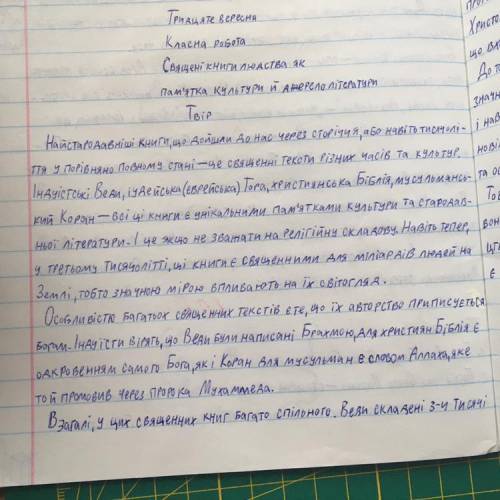 Тридцяте вересня
Класна робота
Священі книги людства як
пам'ятка культури й джерело літератури
Твір
Найстародавніші книги, що дойшли до нас через сторіччя, або навіть тисячолі-
ття у порівняно повному стані — це священні тексти різних часів та культур.
Індуїстські Веди, іудейська (єврейська) Тора, християнська Біблія, мусульмансь-
кий Коран — всі ці книги є унікальними пам'ятками культури та стародав-
ньої літератури. І це якщо не зважати на релігійну складову. Навіть тепер,
у третьому тисячолітті, ці книги є священними для міліардів людей на
Землі, тобто значною мірою впливають на їх світогляд.
Особливістю багатьох священних текстів є те, що їх авторство приписується
богам. Індуїсти вірять, що Веди були написані Брахмою, для християн Біблія є
одкровенням самого Бога, як і Коран для мусульман є словом Аллаха, яке
той промовив через пророка Мухаммеда.
Взагалі, у цих священних книг багато спільного. Веди складені 3-и тисячі
Христо
що вва
До то
значн
і нав
нові
та о
Тов
вон
є